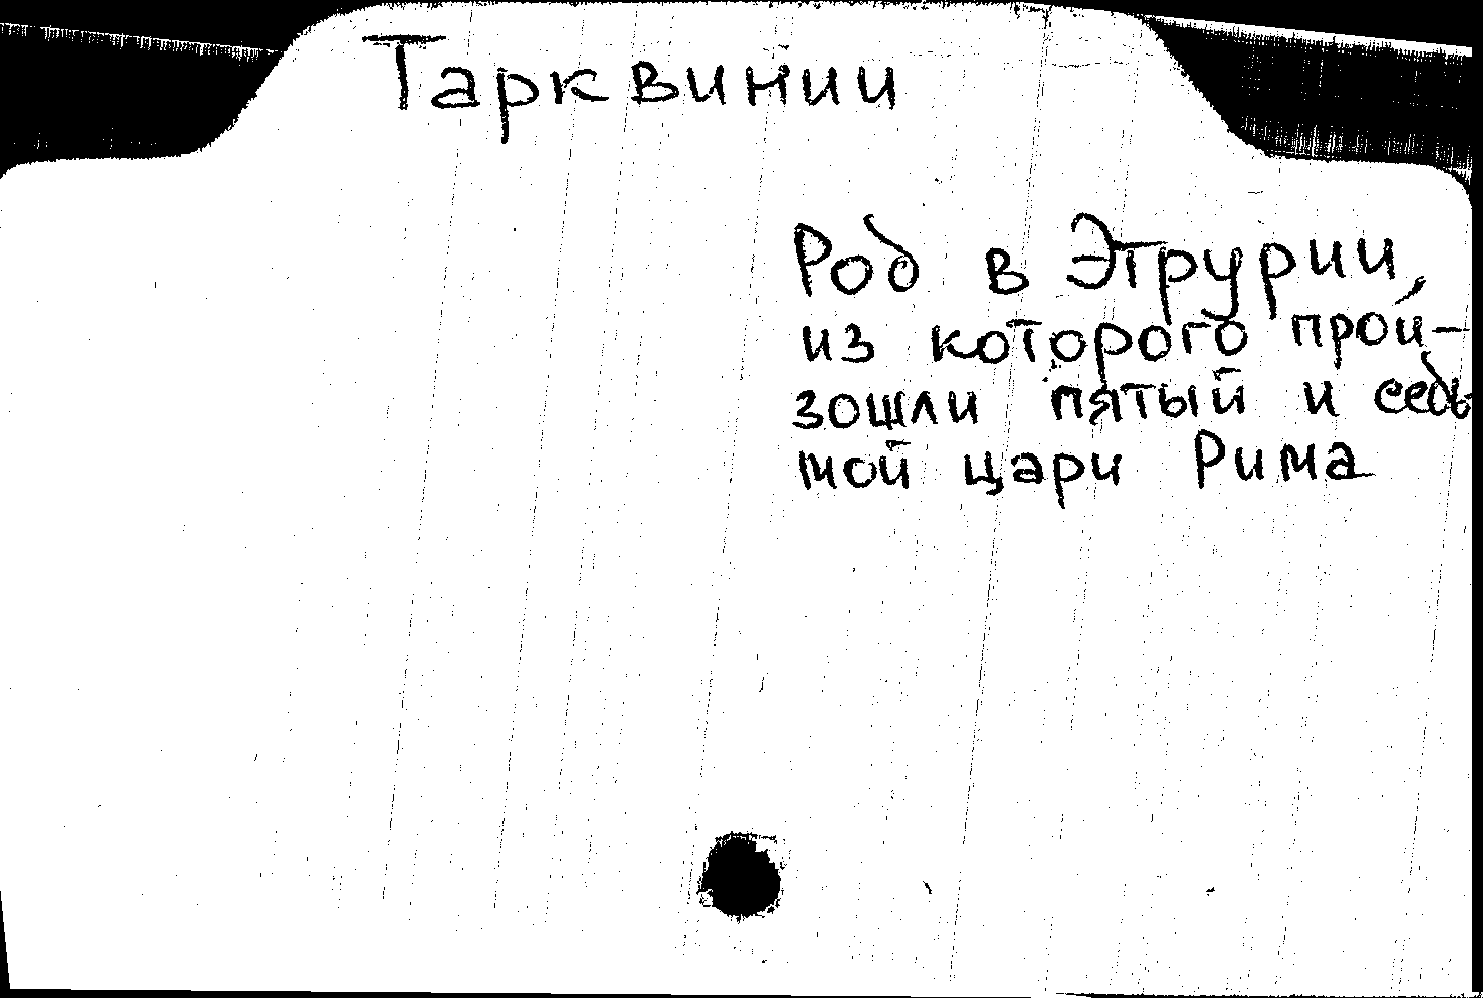 Тарквинии
Род в Этрурии,
из которого прои-
зошли пятый и седь
мой цари Рима